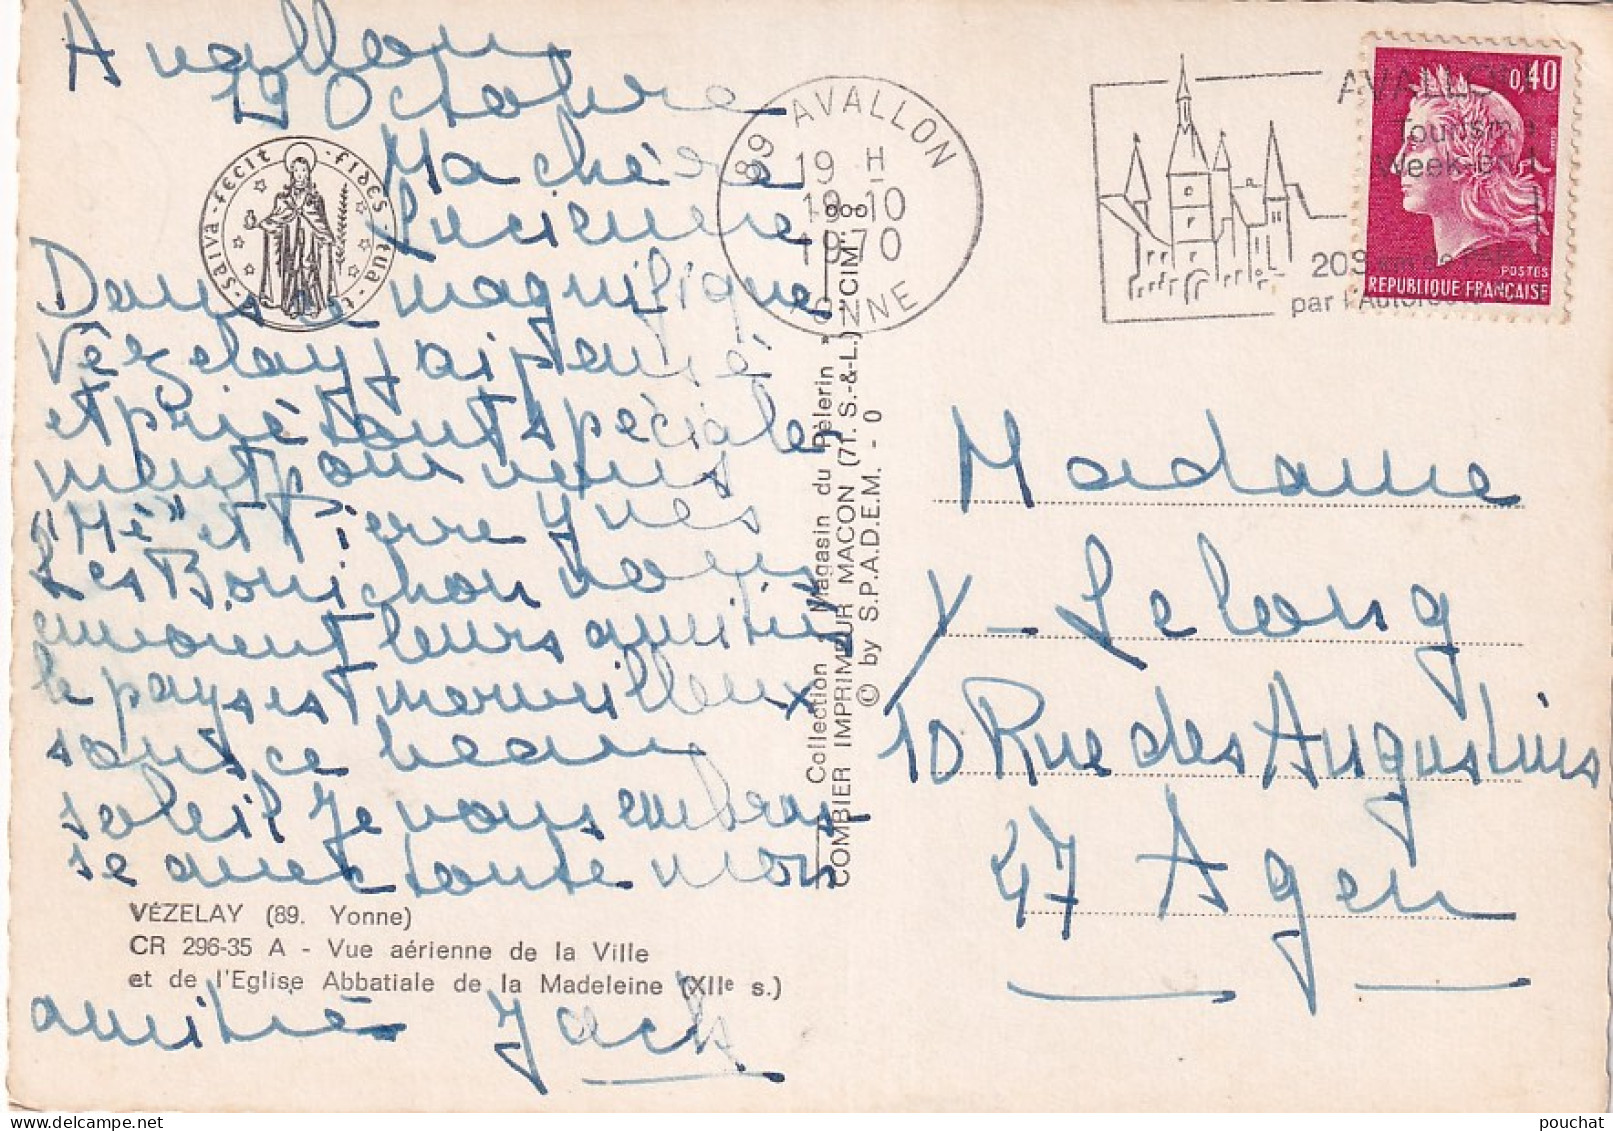 Avallon
19 Octobre
Ma chère
Lucienne
Dans ce magnifique
Vêzelay j'ai pensé
et prié tout spéciale
ment pour vous
"Mé" et Pierre Yves
Les Bonichon vous
envoient leurs amitiés
le pays est merveilleux
sous ce beau
soleil Je vous embras
se avec toute mon
amitié Jack
salva · fecit · fides · tua · te
VÉZELAY (89. Yonne)
CR 296-35 A - Vue aérienne de la Ville
et de l'Eglise Abbatiale de la Madeleine (XIIe s.)
Collection Magasin du Pèlerin *
COMBIER IMPRIMEUR MACON (71. S.-&-L.) "CIM"
© by S.P.A.D.E.M. - 0
89 AVALLON
19 H
19-10
1970
YONNE
AVALLON
Tourisme
Week-end
par l'Autoroute
0,40
POSTES
REPUBLIQUE FRANÇAISE
Madame
Y- Lelong
10 Rue des Augustins
47 Agen
pouchat